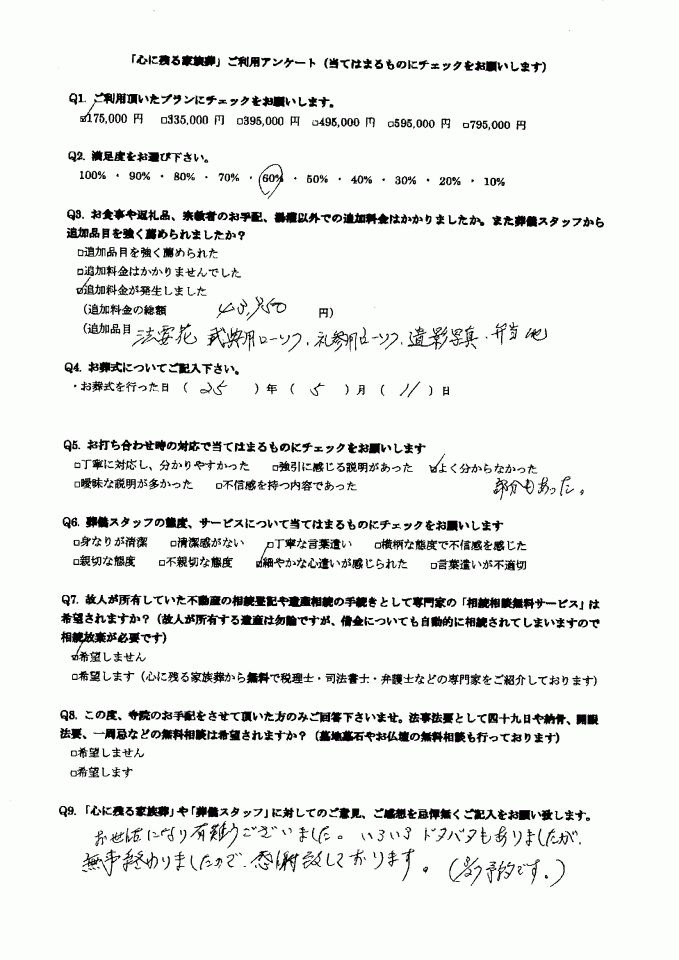 「心に残る家族葬」ご利用アンケート（当てはまるものにチェックをお願いします）
Q1. ご利用頂いたプランにチェックをお願いします。
☑175,000 円 □335,000 円 □395,000 円 □495,000 円 □595,000 円 □795,000 円
Q2. 満足度をお選び下さい。
100% ・ 90% ・ 80% ・ 70% ・ 60% ・ 50% ・ 40% ・ 30% ・ 20% ・ 10%
Q3. お食事や返礼品、宗教者のお手配、搬送以外での追加料金はかかりましたか。また葬儀スタッフから
追加品目を強く薦められましたか？
□追加品目を強く薦められた
□追加料金はかかりませんでした
☑追加料金が発生しました
（追加料金の総額 円）
（追加品目 法要花 ローソク、礼参用ローソク、遺影写真・弁当 他
Q4. お葬式についてご記入下さい。
・お葬式を行った日 （ 25 ）年（ 5 ）月（ 11 ）日
Q5. お打ち合わせ時の対応で当てはまるものにチェックをお願いします
□丁寧に対応し、分かりやすかった □強引に感じる説明があった ☑よく分からなかった
□曖昧な説明が多かった □不信感を持つ内容であった 部分もあった。
Q6. 葬儀スタッフの態度、サービスについて当てはまるものにチェックをお願いします
□身なりが清潔 □清潔感がない □丁寧な言葉遣い □横柄な態度で不信感を感じた
□親切な態度 □不親切な態度 ☑細やかな心遣いが感じられた □言葉遣いが不適切
Q7. 故人が所有していた不動産の相続登記や遺産相続の手続きとして専門家の「相続相談無料サービス」は
希望されますか？（故人が所有する遺産は勿論ですが、借金についても自動的に相続されてしまいますので
相続放棄が必要です）
☑希望しません
□希望します（心に残る家族葬から無料で税理士・司法書士・弁護士などの専門家をご紹介しております）
Q8. この度、寺院のお手配をさせて頂いた方のみご回答下さいませ。法事法要として四十九日や納骨、開眼
法要、一周忌などの無料相談は希望されますか？（墓地墓石やお仏壇の無料相談も行っております）
□希望しません
□希望します
Q9. 「心に残る家族葬」や「葬儀スタッフ」に対してのご意見、ご感想を忌憚無くご記入をお願い致します。
お世話になり有難うございました。いろいろドタバタもありましたが、
無事終わりましたので、感謝致しております。（予約です。）